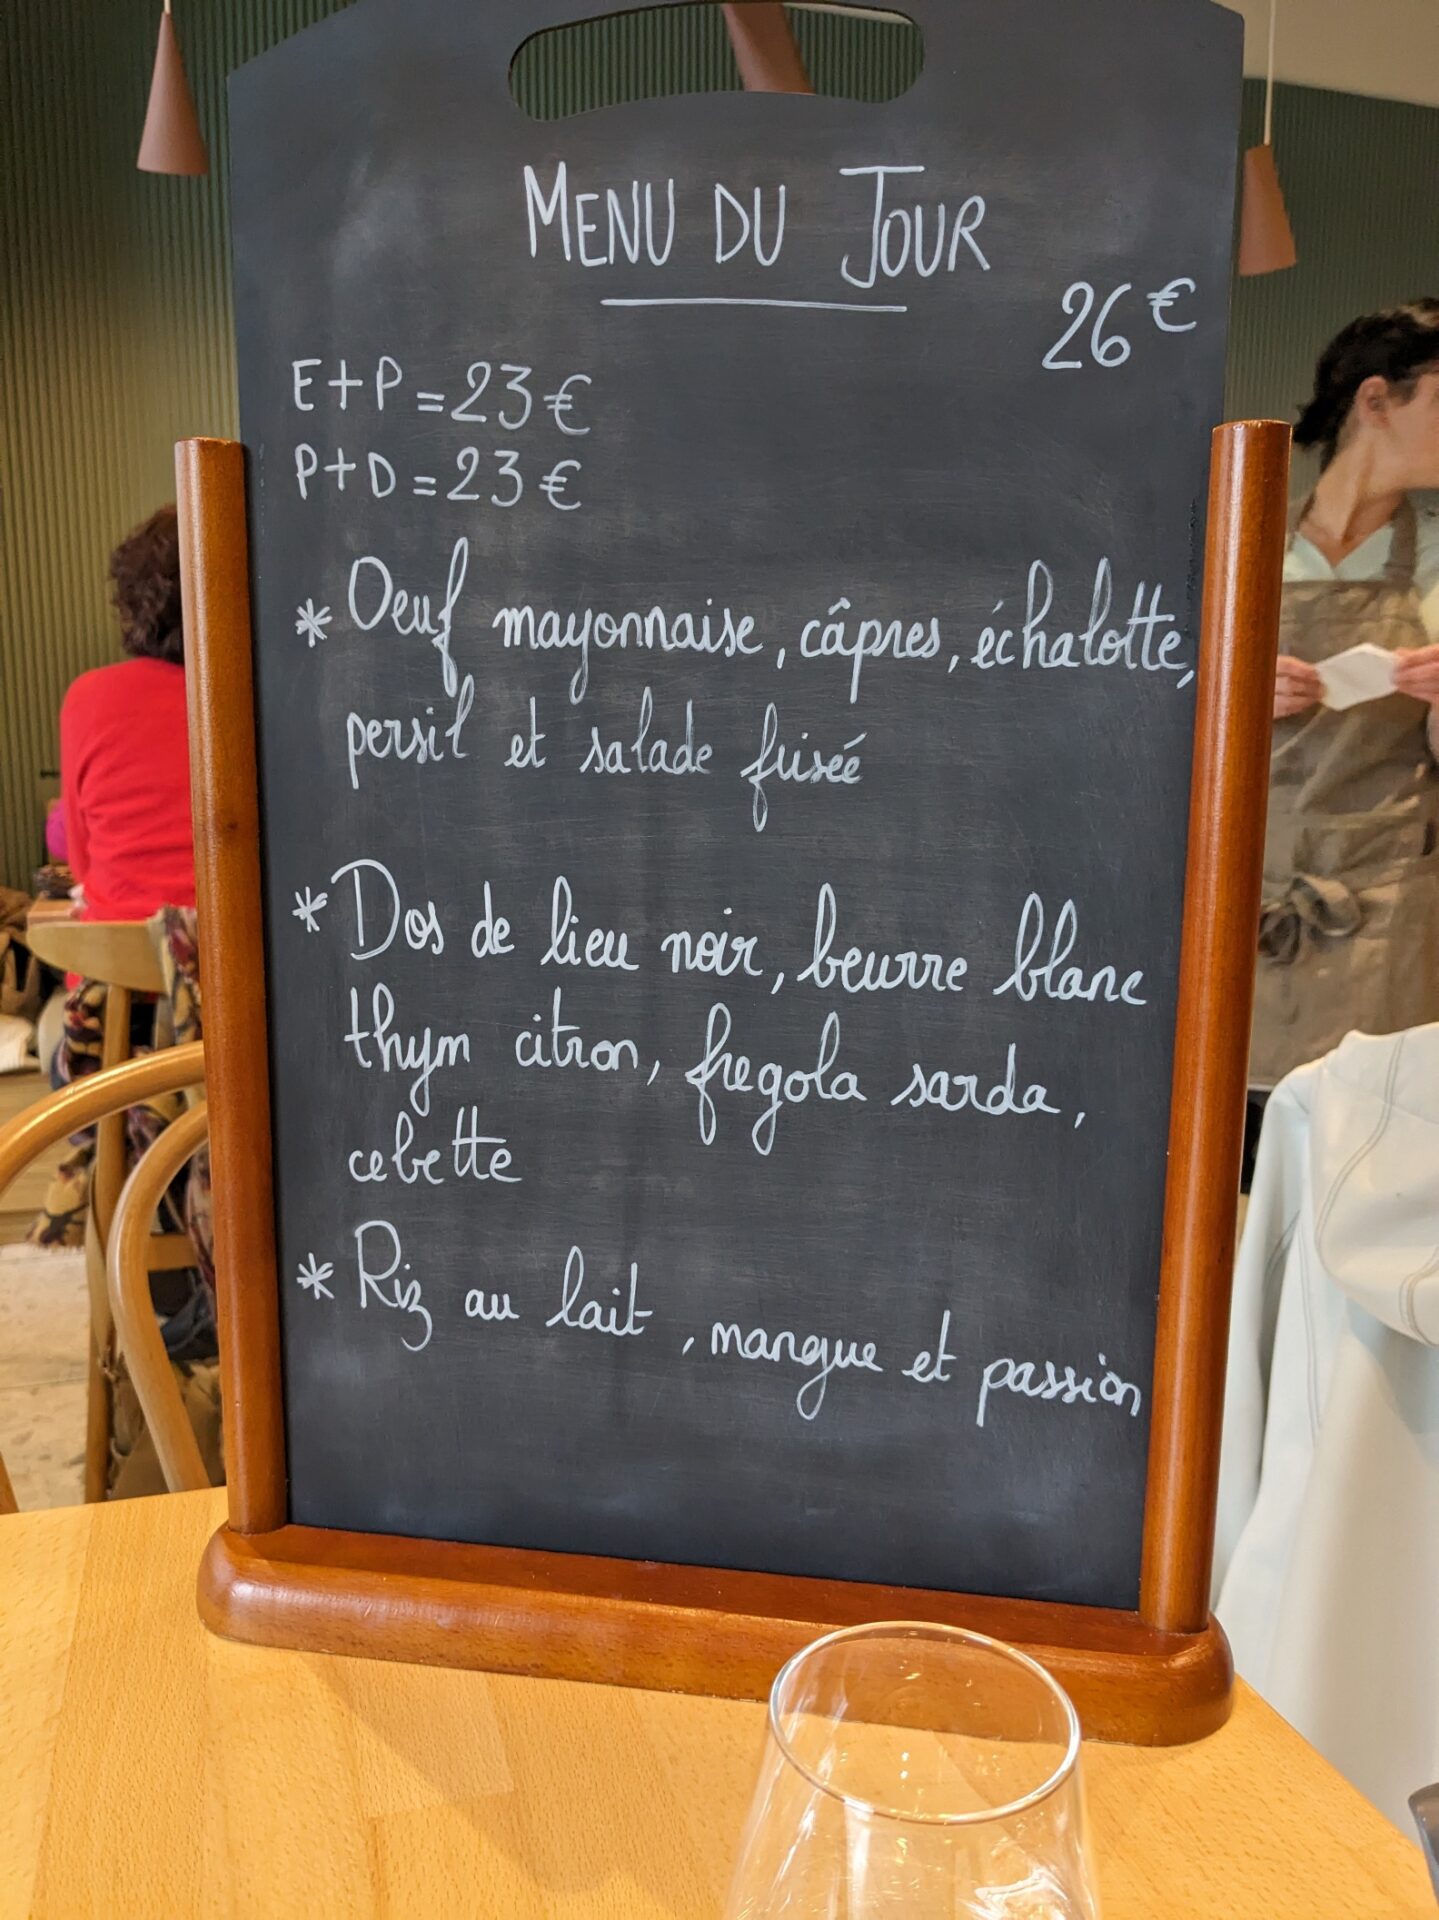 MENU DU JOUR
26€
E+P=23€
P+D=23€
* Oeuf mayonnaise, câpres, échalotte,
persil et salade frisée
* Dos de lieu noir, beurre blanc
thym citron, fregola sarda,
cebette
* Riz au lait, mangue et passion